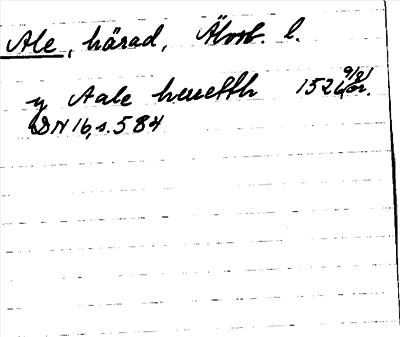 Ale, härad, Älvsb. l.
y Aale herett 1526 9/2 or.
DN 16, s. 584